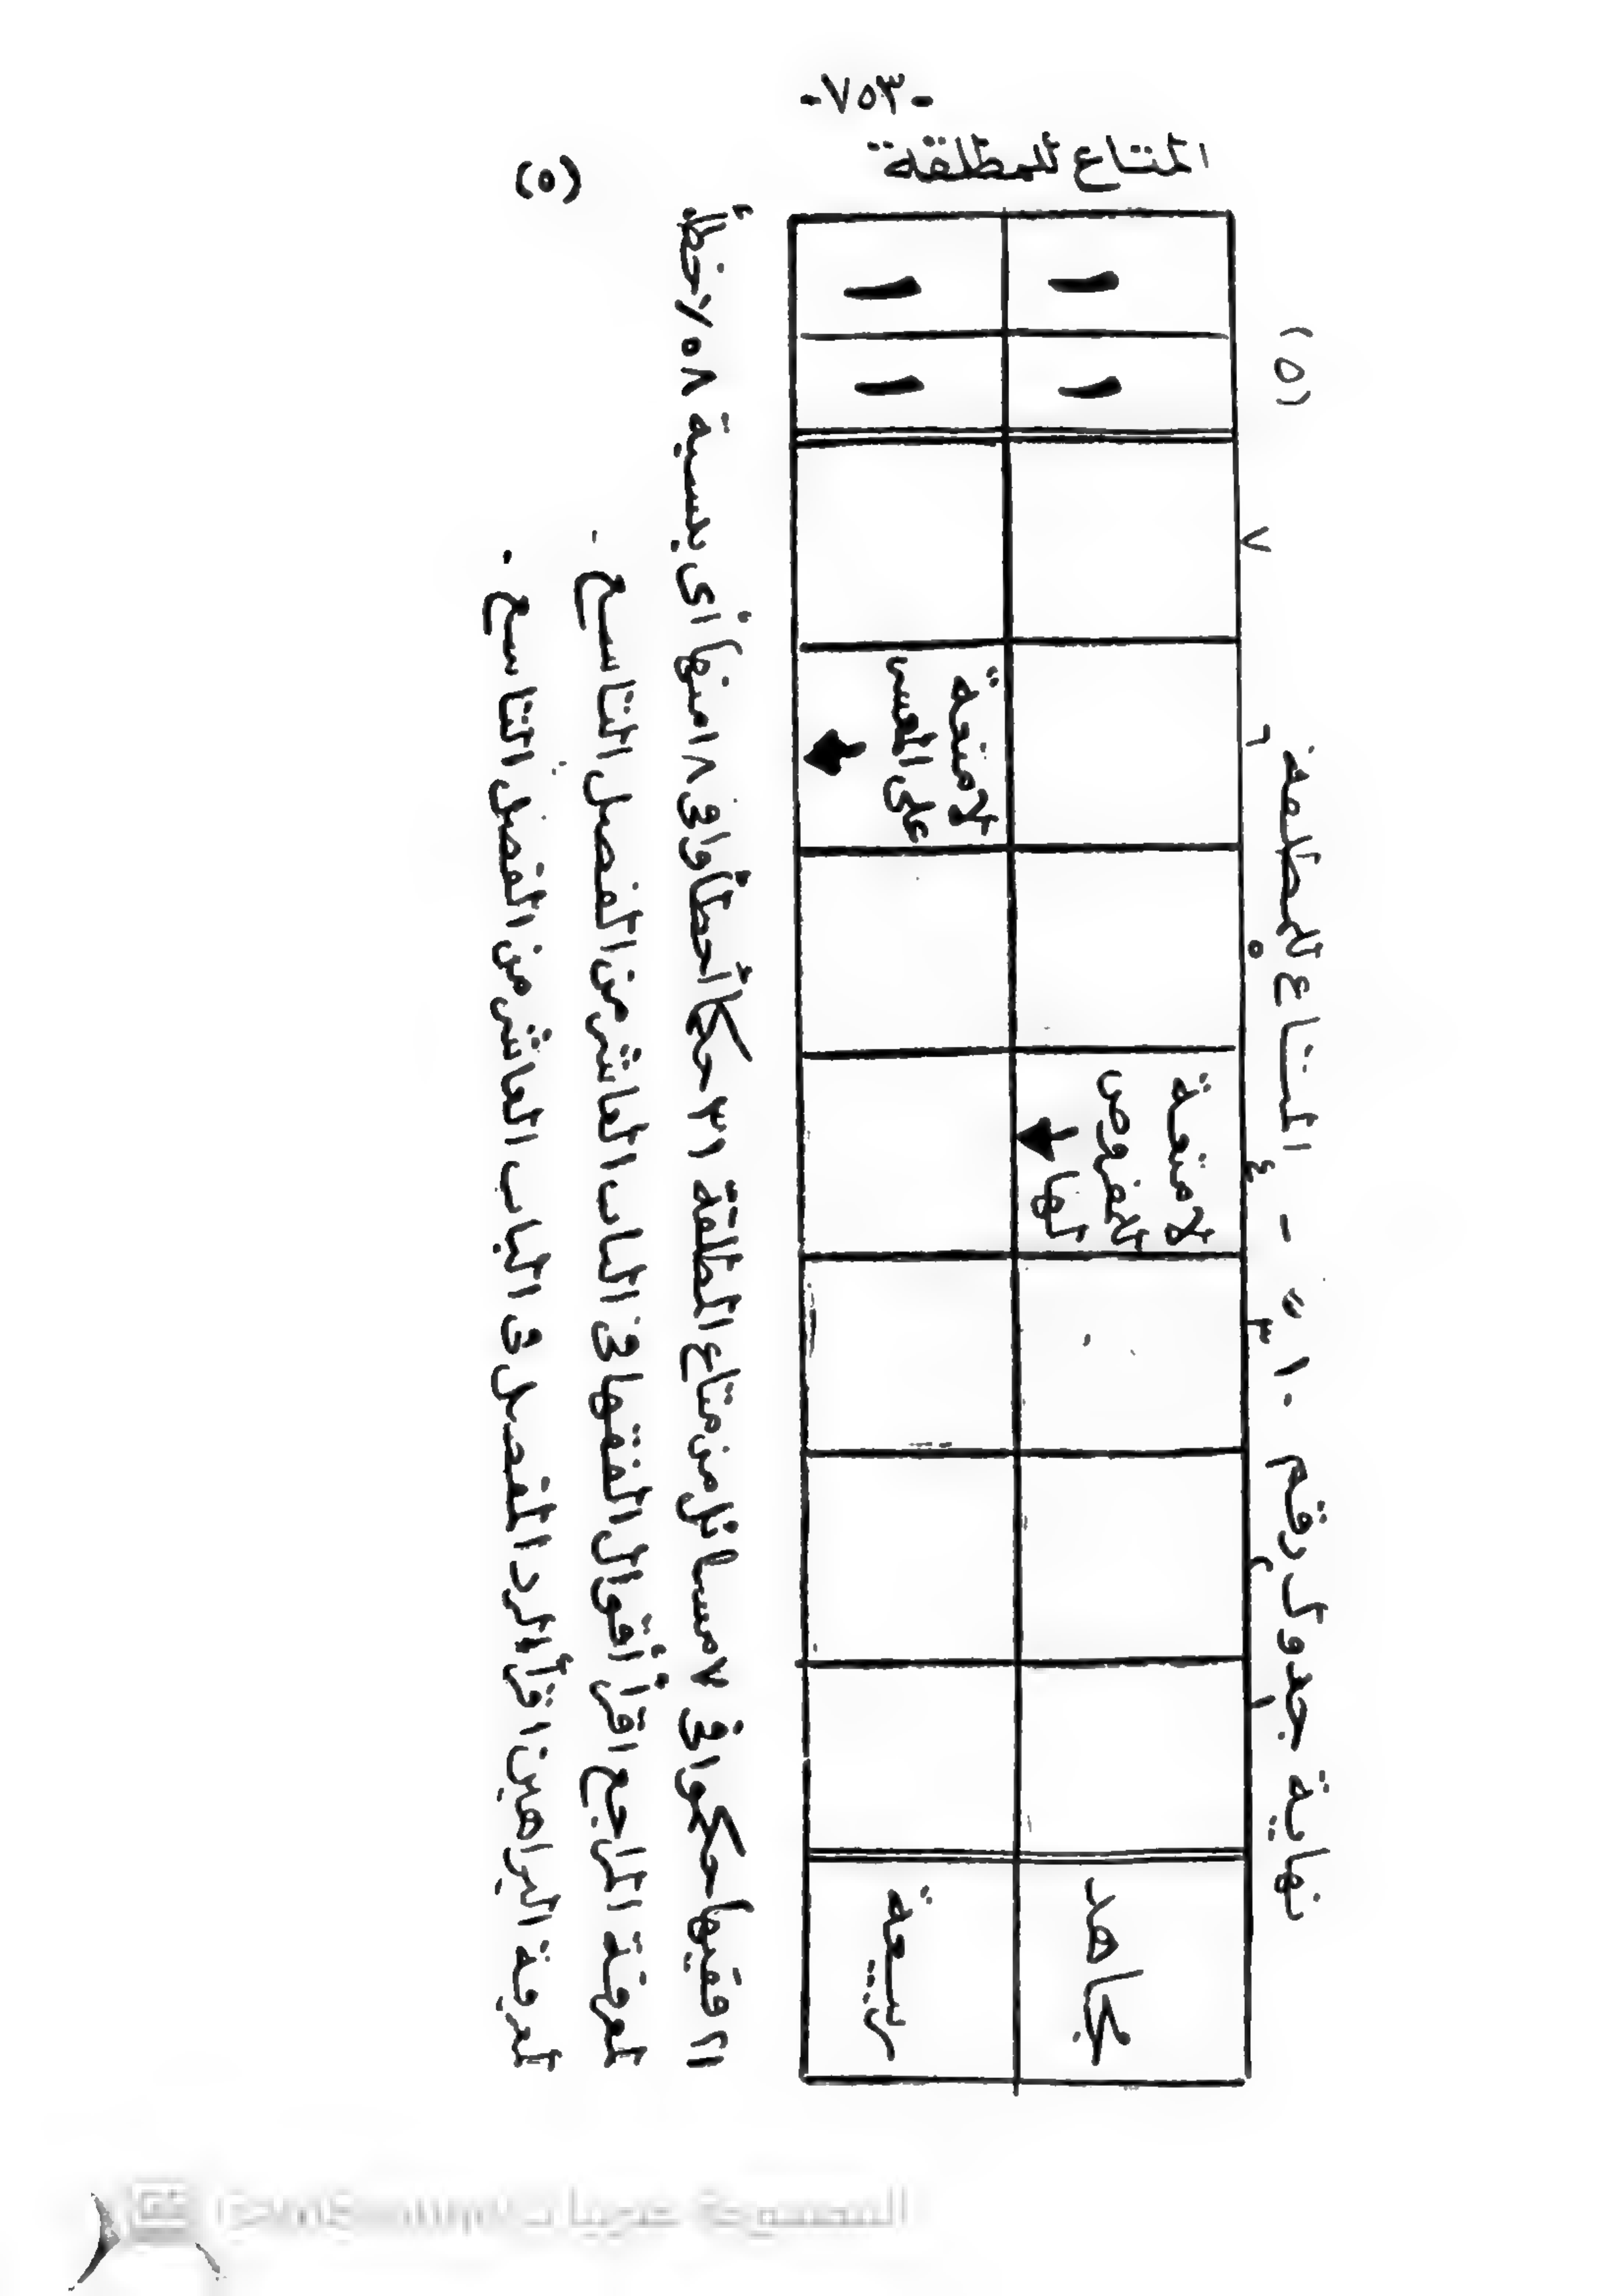 -٧٥٣-
المتاع للمطلقة
(٥)
نهاية جدول رقم ١٠ " - المتاع للمطلقة (٥)
١ ٢ ٣ ٤ ٥ ٦ ٧
مجاهد لا متعة للمفروض لها ١ ١
ربيعة لا متعة على ١ ١
٢١ فقيها حكموا فى ٧ مسائل من متاع المطلقة ٣١ حكما أخطأوا فى ١٨ منها أى بنسبة ٥٨٪ خطأ
لمعرفة المراجع اقرأ أقوال الفقهاء فى الباب العاشر من الفصل التاسع .
لمعرفة البراهين اقرأ الرد المفصل فى الباب العاشر من الفصل التاسع .
CamScanner